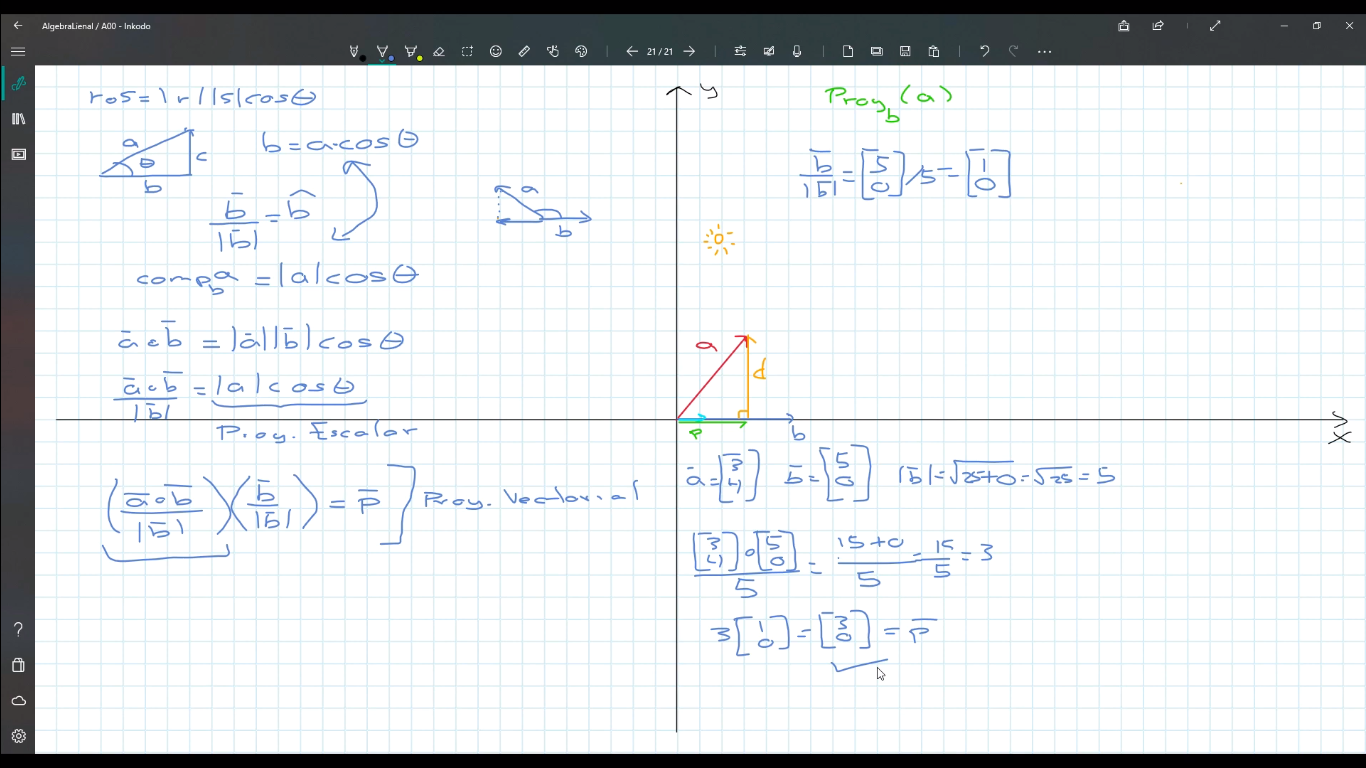 AlgebraLienal / A00 - Inkodo
21/21
r∘s=|r||s|cosθ
a
θ
c
b
b=a·cosθ
b̄/|b̄| = b̂
a
b
comp_b a = |a|cosθ
ā∘b̄ = |ā||b̄|cosθ
ā∘b̄/|b̄| = |a|cosθ
Proy. Escalar
(ā∘b̄/|b̄|)(b̄/|b̄|) = p̄ ] Proy. Vectorial
y
Proy_b(a)
b̄/|b̄| = [5 0]/5 = [1 0]
a
d
p
b
x
ā=[3 4] b̄=[5 0] |b̄|=√25+0=√25=5
[3 4]∘[5 0]/5 = 15+0/5 = 15/5 = 3
3[1 0]=[3 0]=p̄